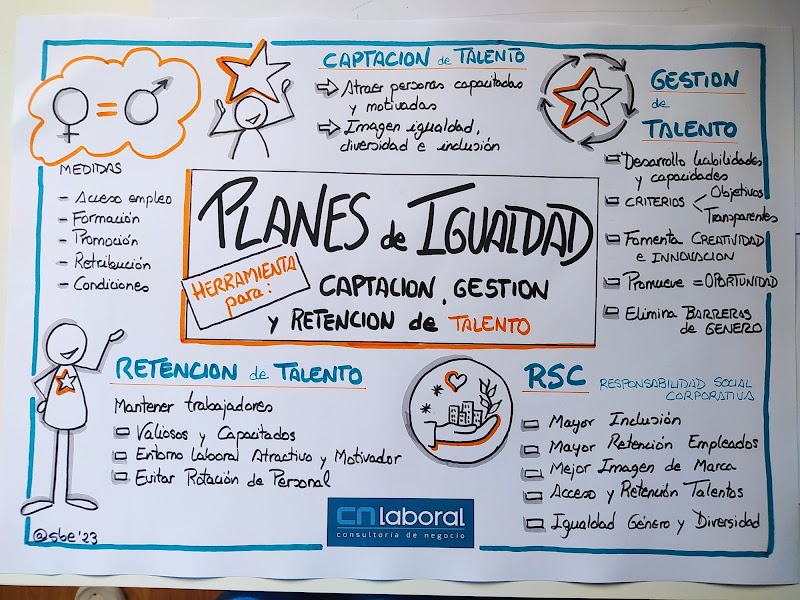 CAPTACION de TALENTO
Atraer personas capacitadas
y motivadas
Imagen igualdad,
diversidad e inclusión
GESTION
de
TALENTO
Desarrollo habilidades
y capacidades
CRITERIOS < Objetivos
Transparentes
Fomenta CREATIVIDAD
e INNOVACION
Promueve = OPORTUNIDAD
Elimina BARRERAS
de GENERO
MEDIDAS
- Acceso empleo
- Formación
- Promoción
- Retribución
- Condiciones
PLANES de IGUALDAD
HERRAMIENTA
para:
CAPTACION, GESTION
y RETENCION de TALENTO
RETENCION de TALENTO
Mantener trabajadores
Valiosos y Capacitados
Entorno Laboral Atractivo y Motivador
Evitar Rotación de Personal
RSC RESPONSABILIDAD SOCIAL
CORPORATIVA
Mayor Inclusión
Mayor Retención Empleados
Mejor Imagen de Marca
Acceso y Retención Talentos
Igualdad Género y Diversidad
cn laboral
consultoría de negocio
@sbe'23